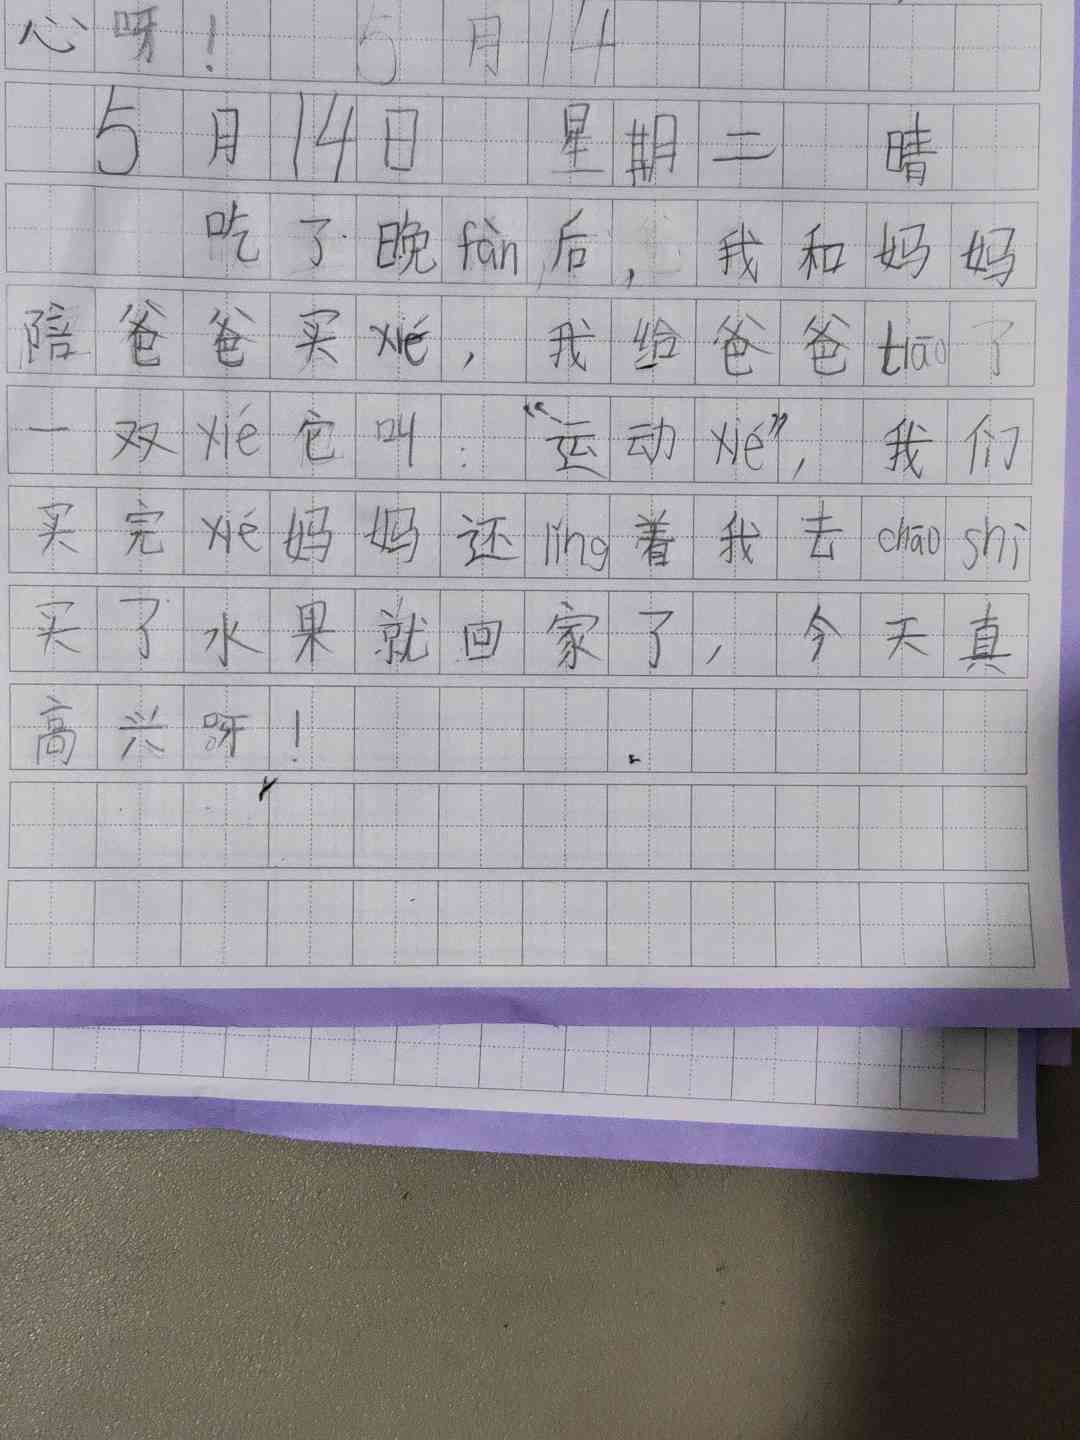 心呀！ 5月14
5月14日 星期二 晴
吃了晚fàn后，我和妈妈
陪爸爸买xié，我给爸爸tiāo了
一双xié它叫：“运动xié”，我们
买完xié妈妈还lǐng着我去chāo shì
买了水果就回家了，今天真
高兴呀！